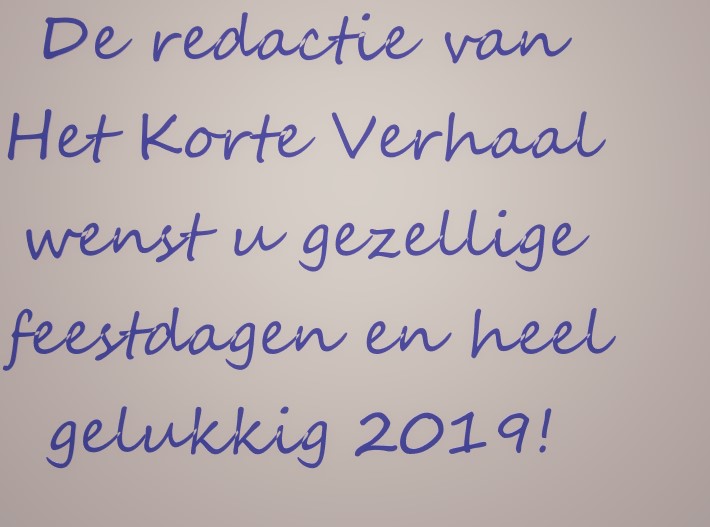 De redactie van
Het Korte Verhaal
wenst u gezellige
feestdagen en heel
gelukkig 2019!